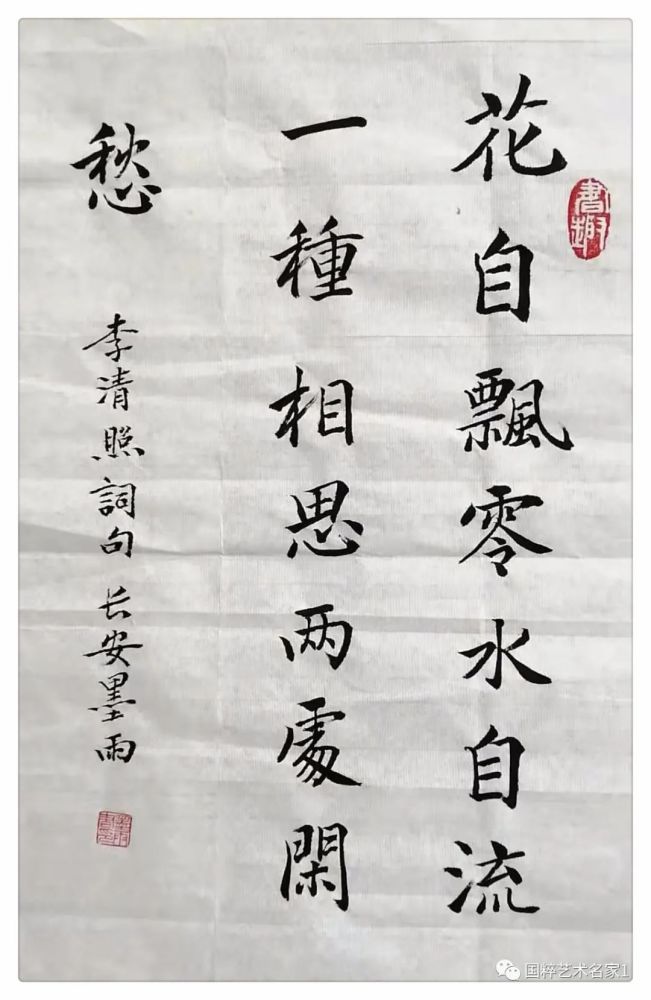 花自飄零水自流
一種相思两處閑
愁
李清照詞句 长安墨雨
書趣
国粹艺术名家1